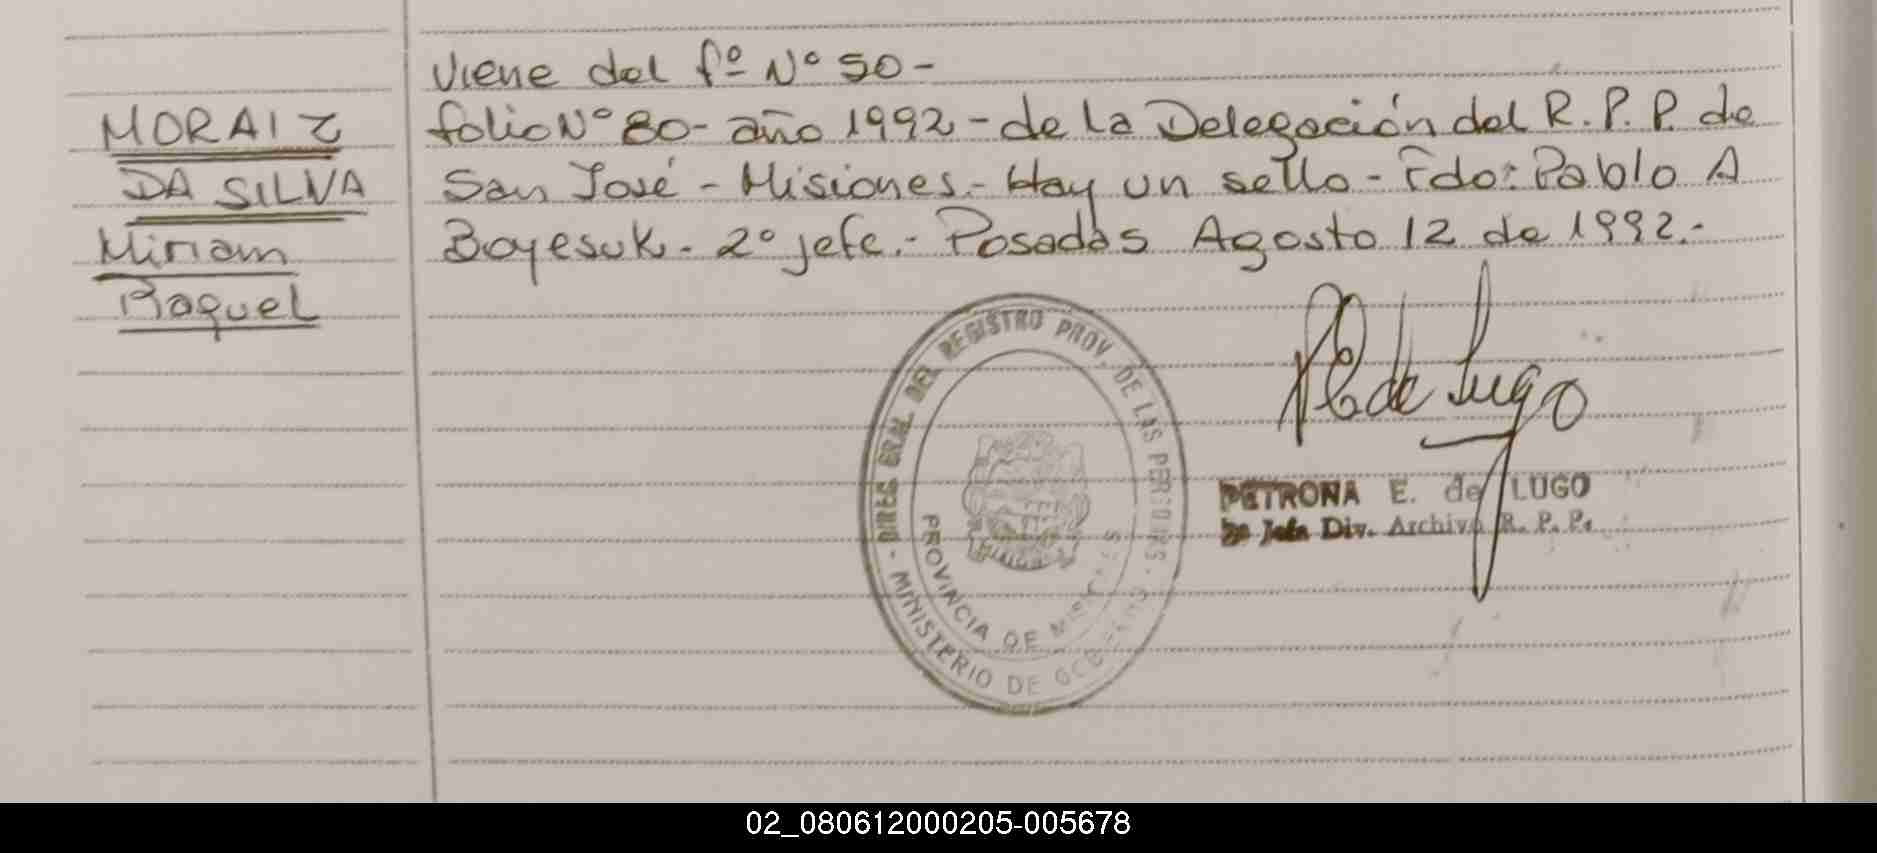 MORAIZ
DA SILVA
Miriam
Raquel
Viene del fº Nº 50-
folio Nº 80- año 1992- de la Delegación del R.P.P. de
San José - Misiones.- Hay un sello - Fdo: Pablo A
Boyesuk. 2º jefe.- Posadas Agosto 12 de 1992.-
de Lugo
PETRONA E. de LUGO
Jefa Div. Archivo R. P. P.
- DIREC GRAL. DEL REGISTRO PROV. DE LAS PERSONAS -
MINISTERIO DE GOBIERNO
PROVINCIA DE MISIONES
02_080612000205-005678